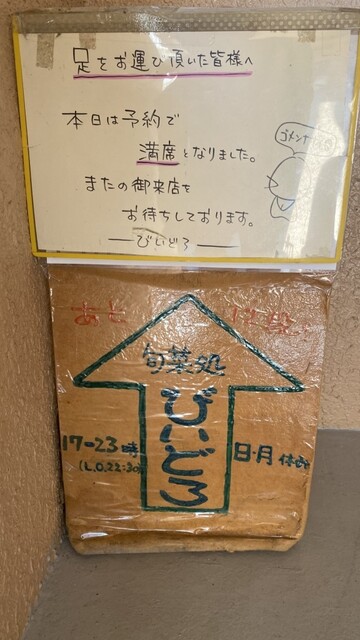 足をお運び頂いた皆様へ
本日は予約で
満席となりました。
またの御来店を
お待ちしております。
ーびいどろー
あと 12段
旬菜処
びいどろ
17-23時
(L.O.22:30)
日・月 休み